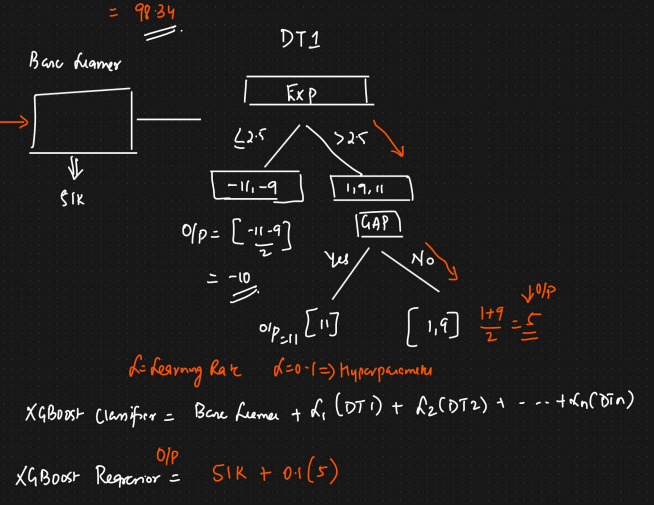 = 98.34
DT1
Base Learner
Exp
≤2.5
>2.5
51K
-11, -9
1, 9, 11
O/P = [-11-9/2]
= -10
GAP
Yes
No
O/P=11 [11]
[1,9] 1+9/2 = 5
O/P
α = Learning Rate α = 0.1 => Hyperparameter
XGBoost Classifier = Base Learner + α1 (DT1) + α2 (DT2) + - - - + αn (DTn)
O/P
XGBoost Regressor = 51K + 0.1(5)